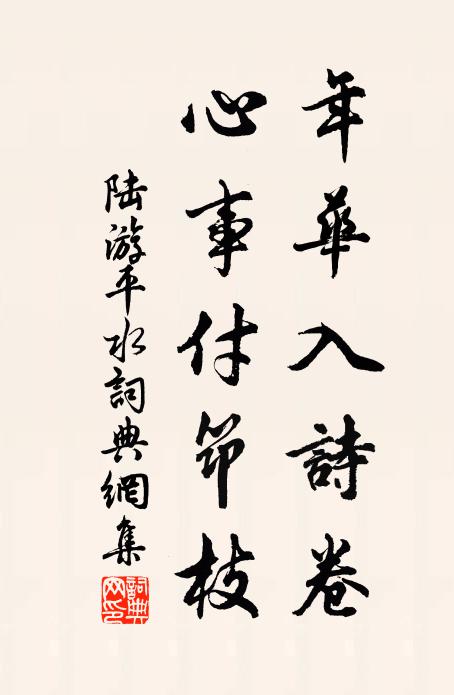 年華入詩卷
心事付筇枝
陸游平水詞典網集
詞典網印